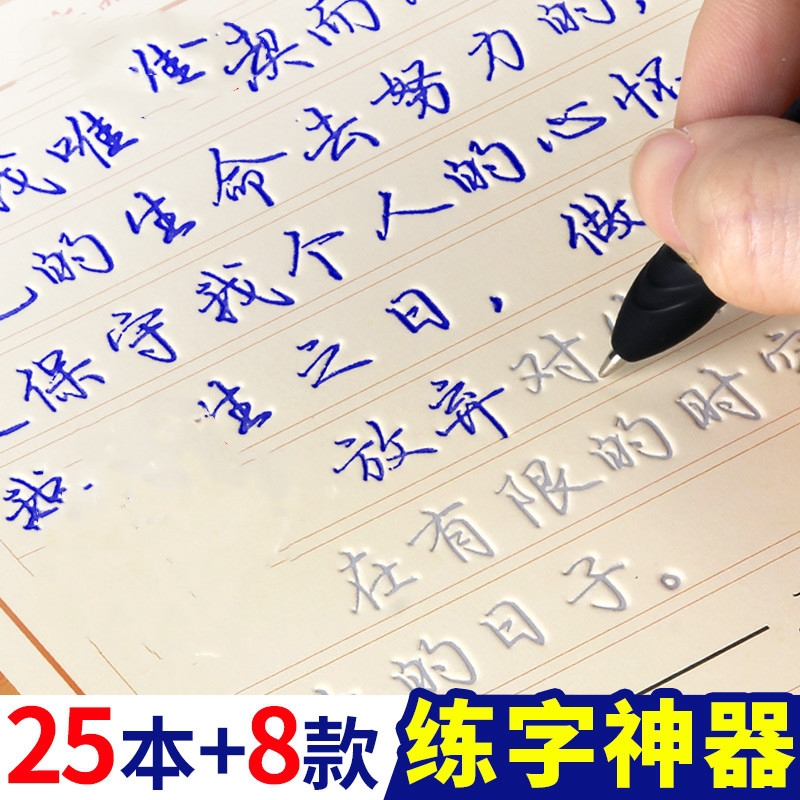 我唯惟契而
的生命去努力的，
保守我个人的心怀
我. 生之日，做
放弃对
在有限的时
的日子。
25本+8款 练字神器